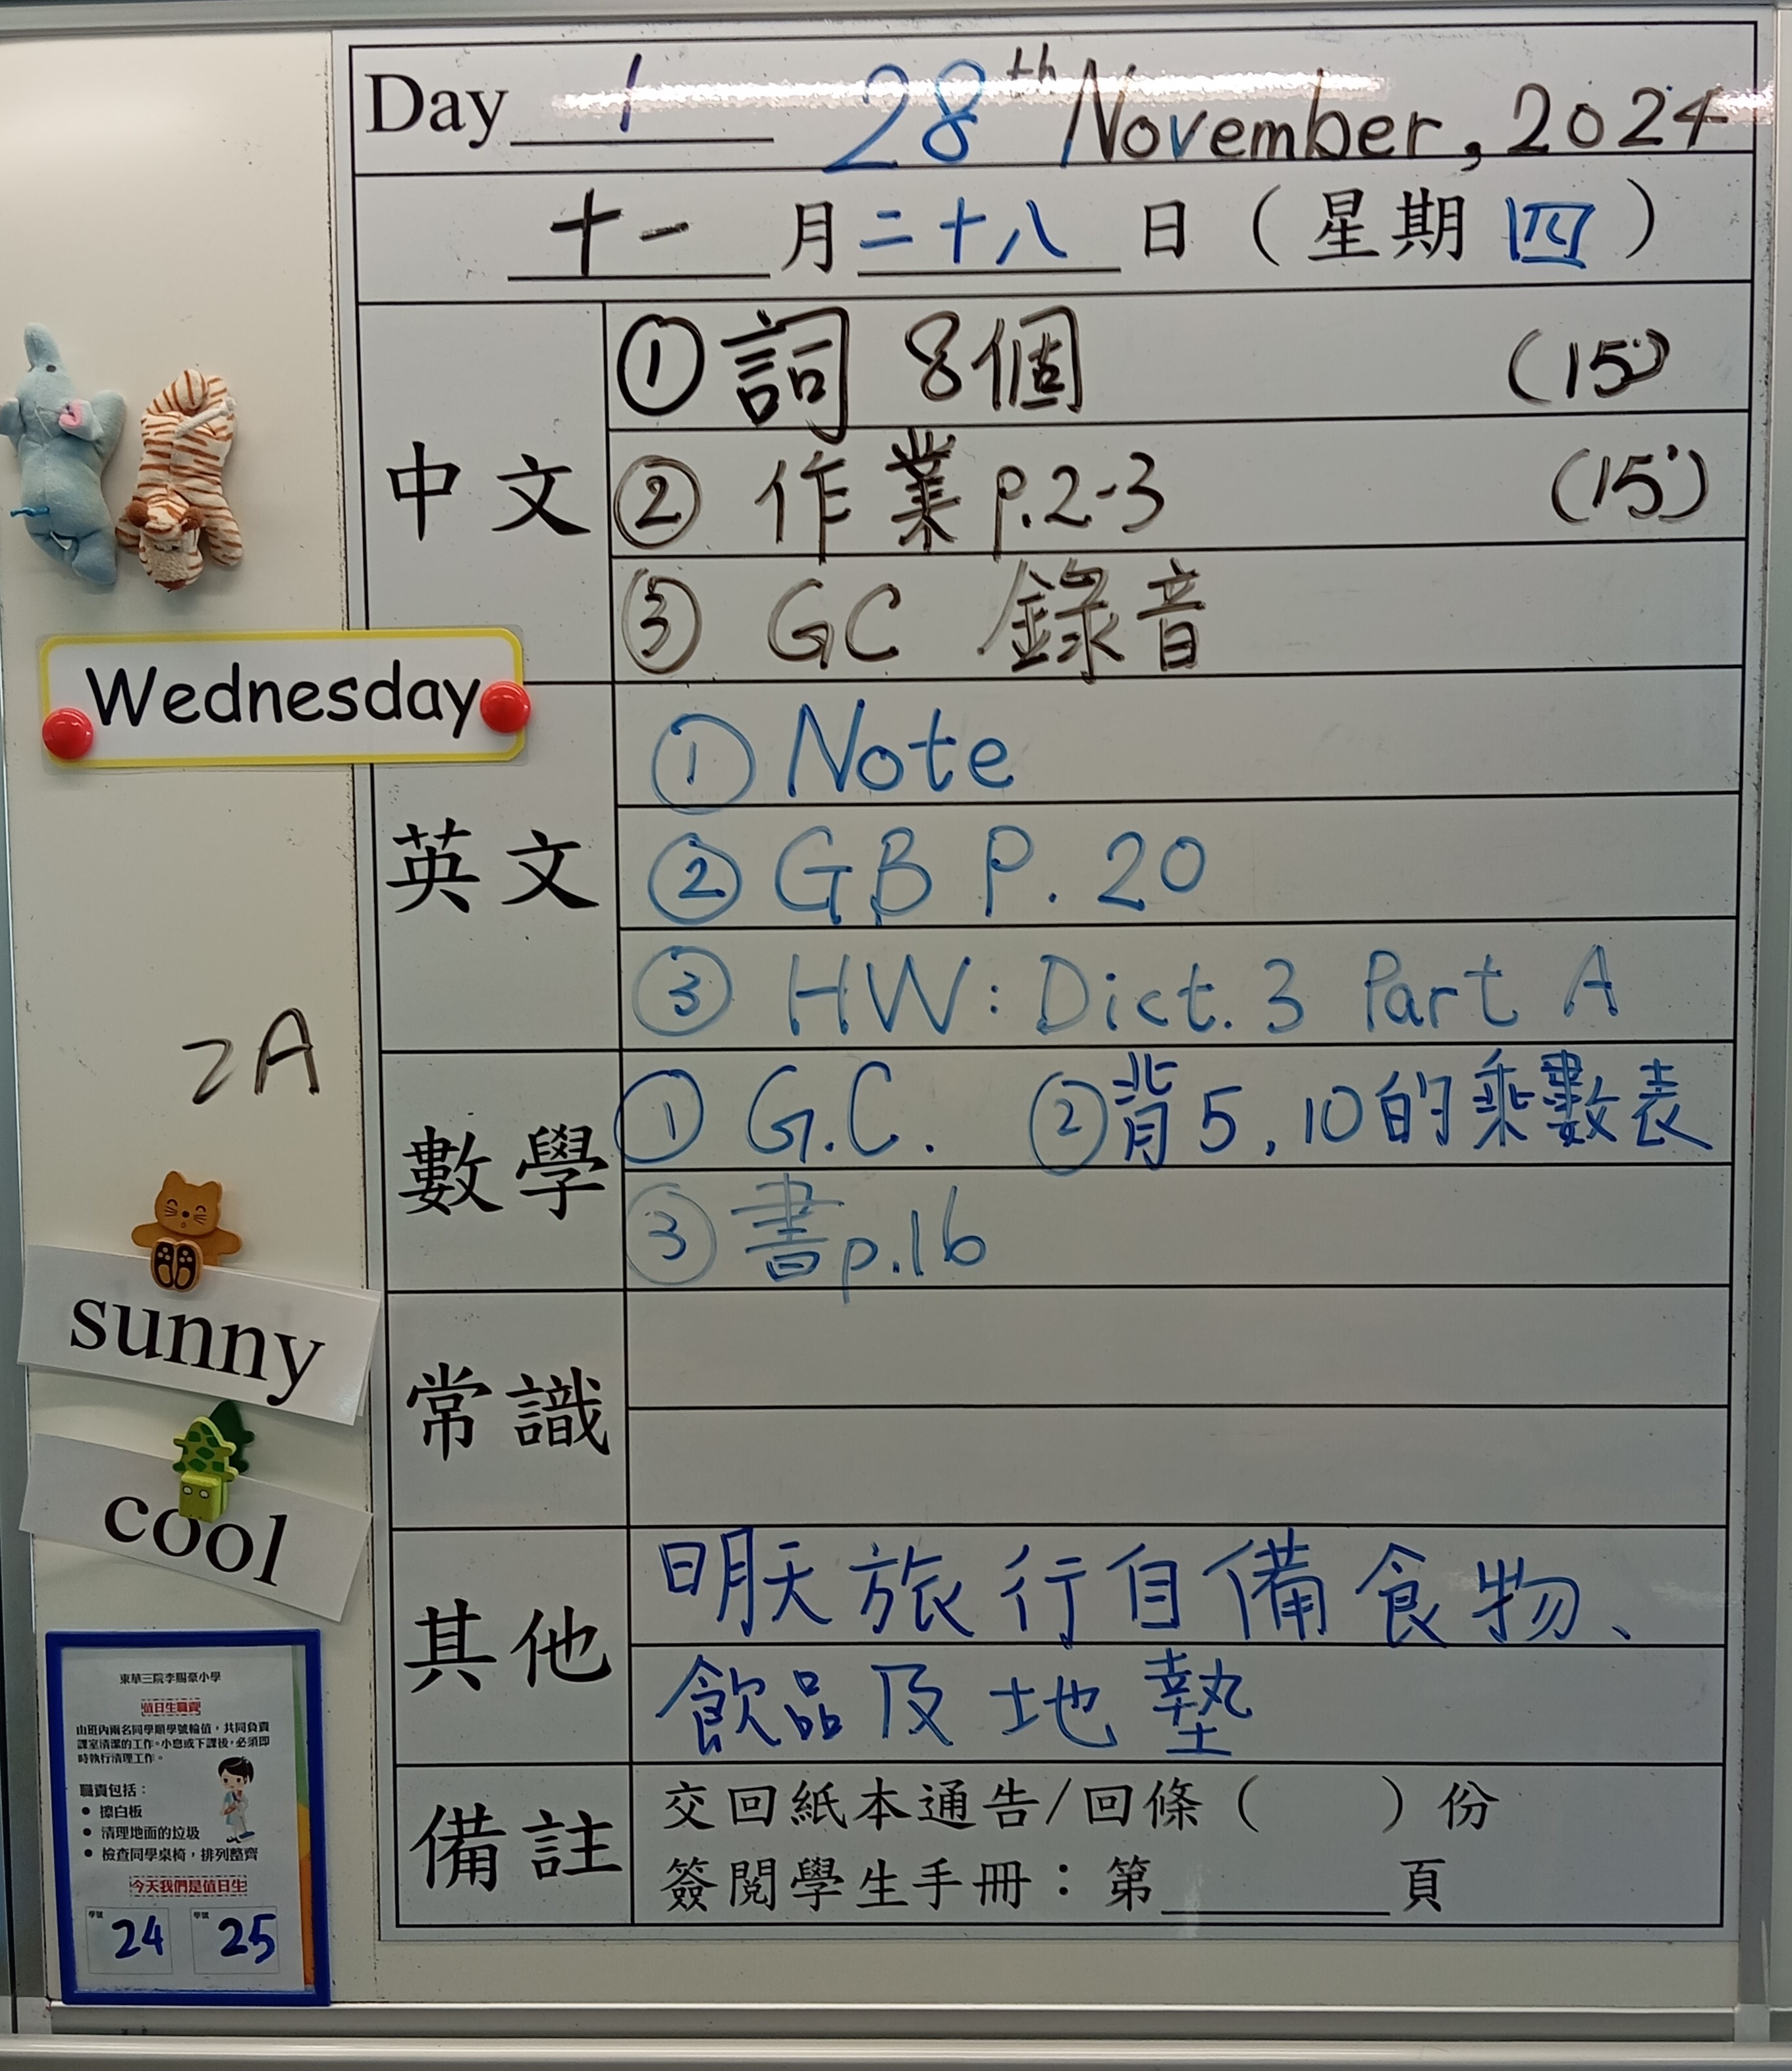 Day 1 28th November, 2024
十一 月 二十八 日（星期 四）
中文
① 詞 8個 (15')
② 作業 p.2-3 (15')
③ GC 錄音
Wednesday
英文
① Note
② GB P. 20
③ HW: Dict. 3 Part A
2A
數學
① G.C. ② 背5, 10的乘數表
③ 書p.16
sunny
常識
cool
其他
明天旅行自備食物、
飲品及地墊
備註
交回紙本通告/回條（ ）份
簽閱學生手冊：第 頁
東華三院李賜豪小學
值日生職責
由班內兩名同學順學號輪值，共同負責
課室清潔的工作。小息或下課後，必須即
時執行清理工作。
職責包括：
● 擦白板
● 清理地面的垃圾
● 檢查同學桌椅，排列整齊
今天我們是值日生
學號 學號
24 25